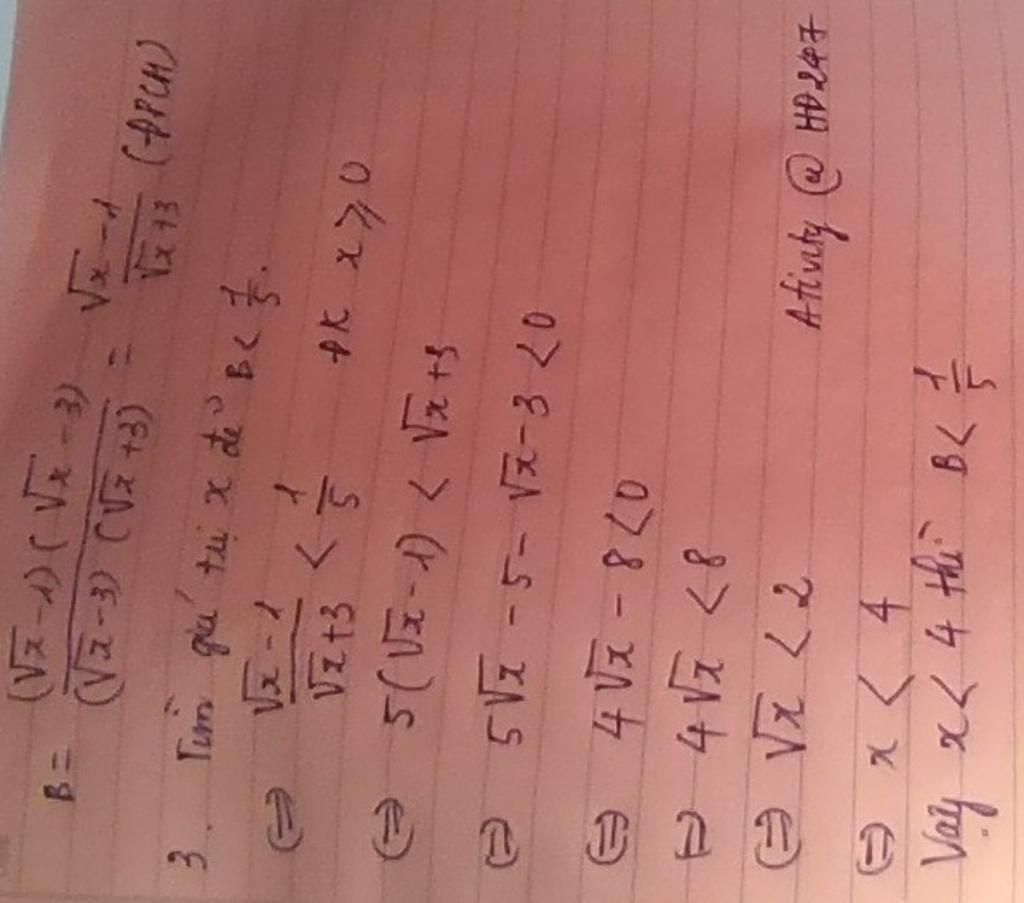 B = (√x - 1)(√x - 3) / (√x - 3)(√x + 3) = √x - 1 / √x + 3 (ĐPCM)
3. Tìm giá trị x để B < 1/5.
⇔ √x - 1 / √x + 3 < 1/5 ĐK x ⩾ 0
⇔ 5(√x - 1) < √x + 3
⇔ 5√x - 5 - √x - 3 < 0
⇔ 4√x - 8 < 0
⇔ 4√x < 8
⇔ √x < 2
Ativity @ HD247
⇔ x < 4
Vậy x < 4 thì B < 1/5